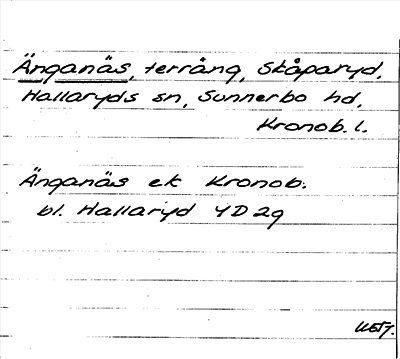 Änganäs, terräng, Skåparyd,
Hallaryds sn, Sunnerbo hd,
Kronob. l.
Änganäs ek Kronob.
bl. Hallaryd 4D2g